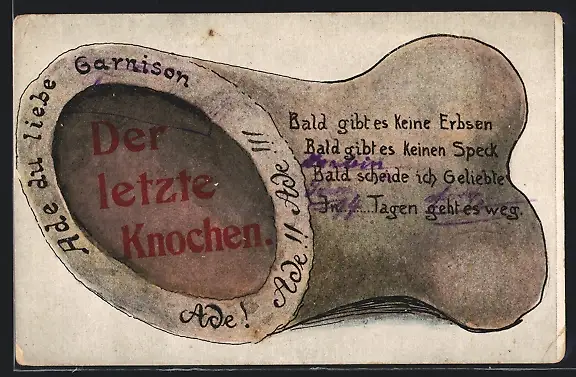 Ade du liebe Garnison
Der
letzte
Knochen.
Ade! Ade!! Ade!!!
Bald gibt es keine Erbsen
Bald gibt es keinen Speck
Bald scheide ich Geliebte
In 4 Tagen geht es weg.